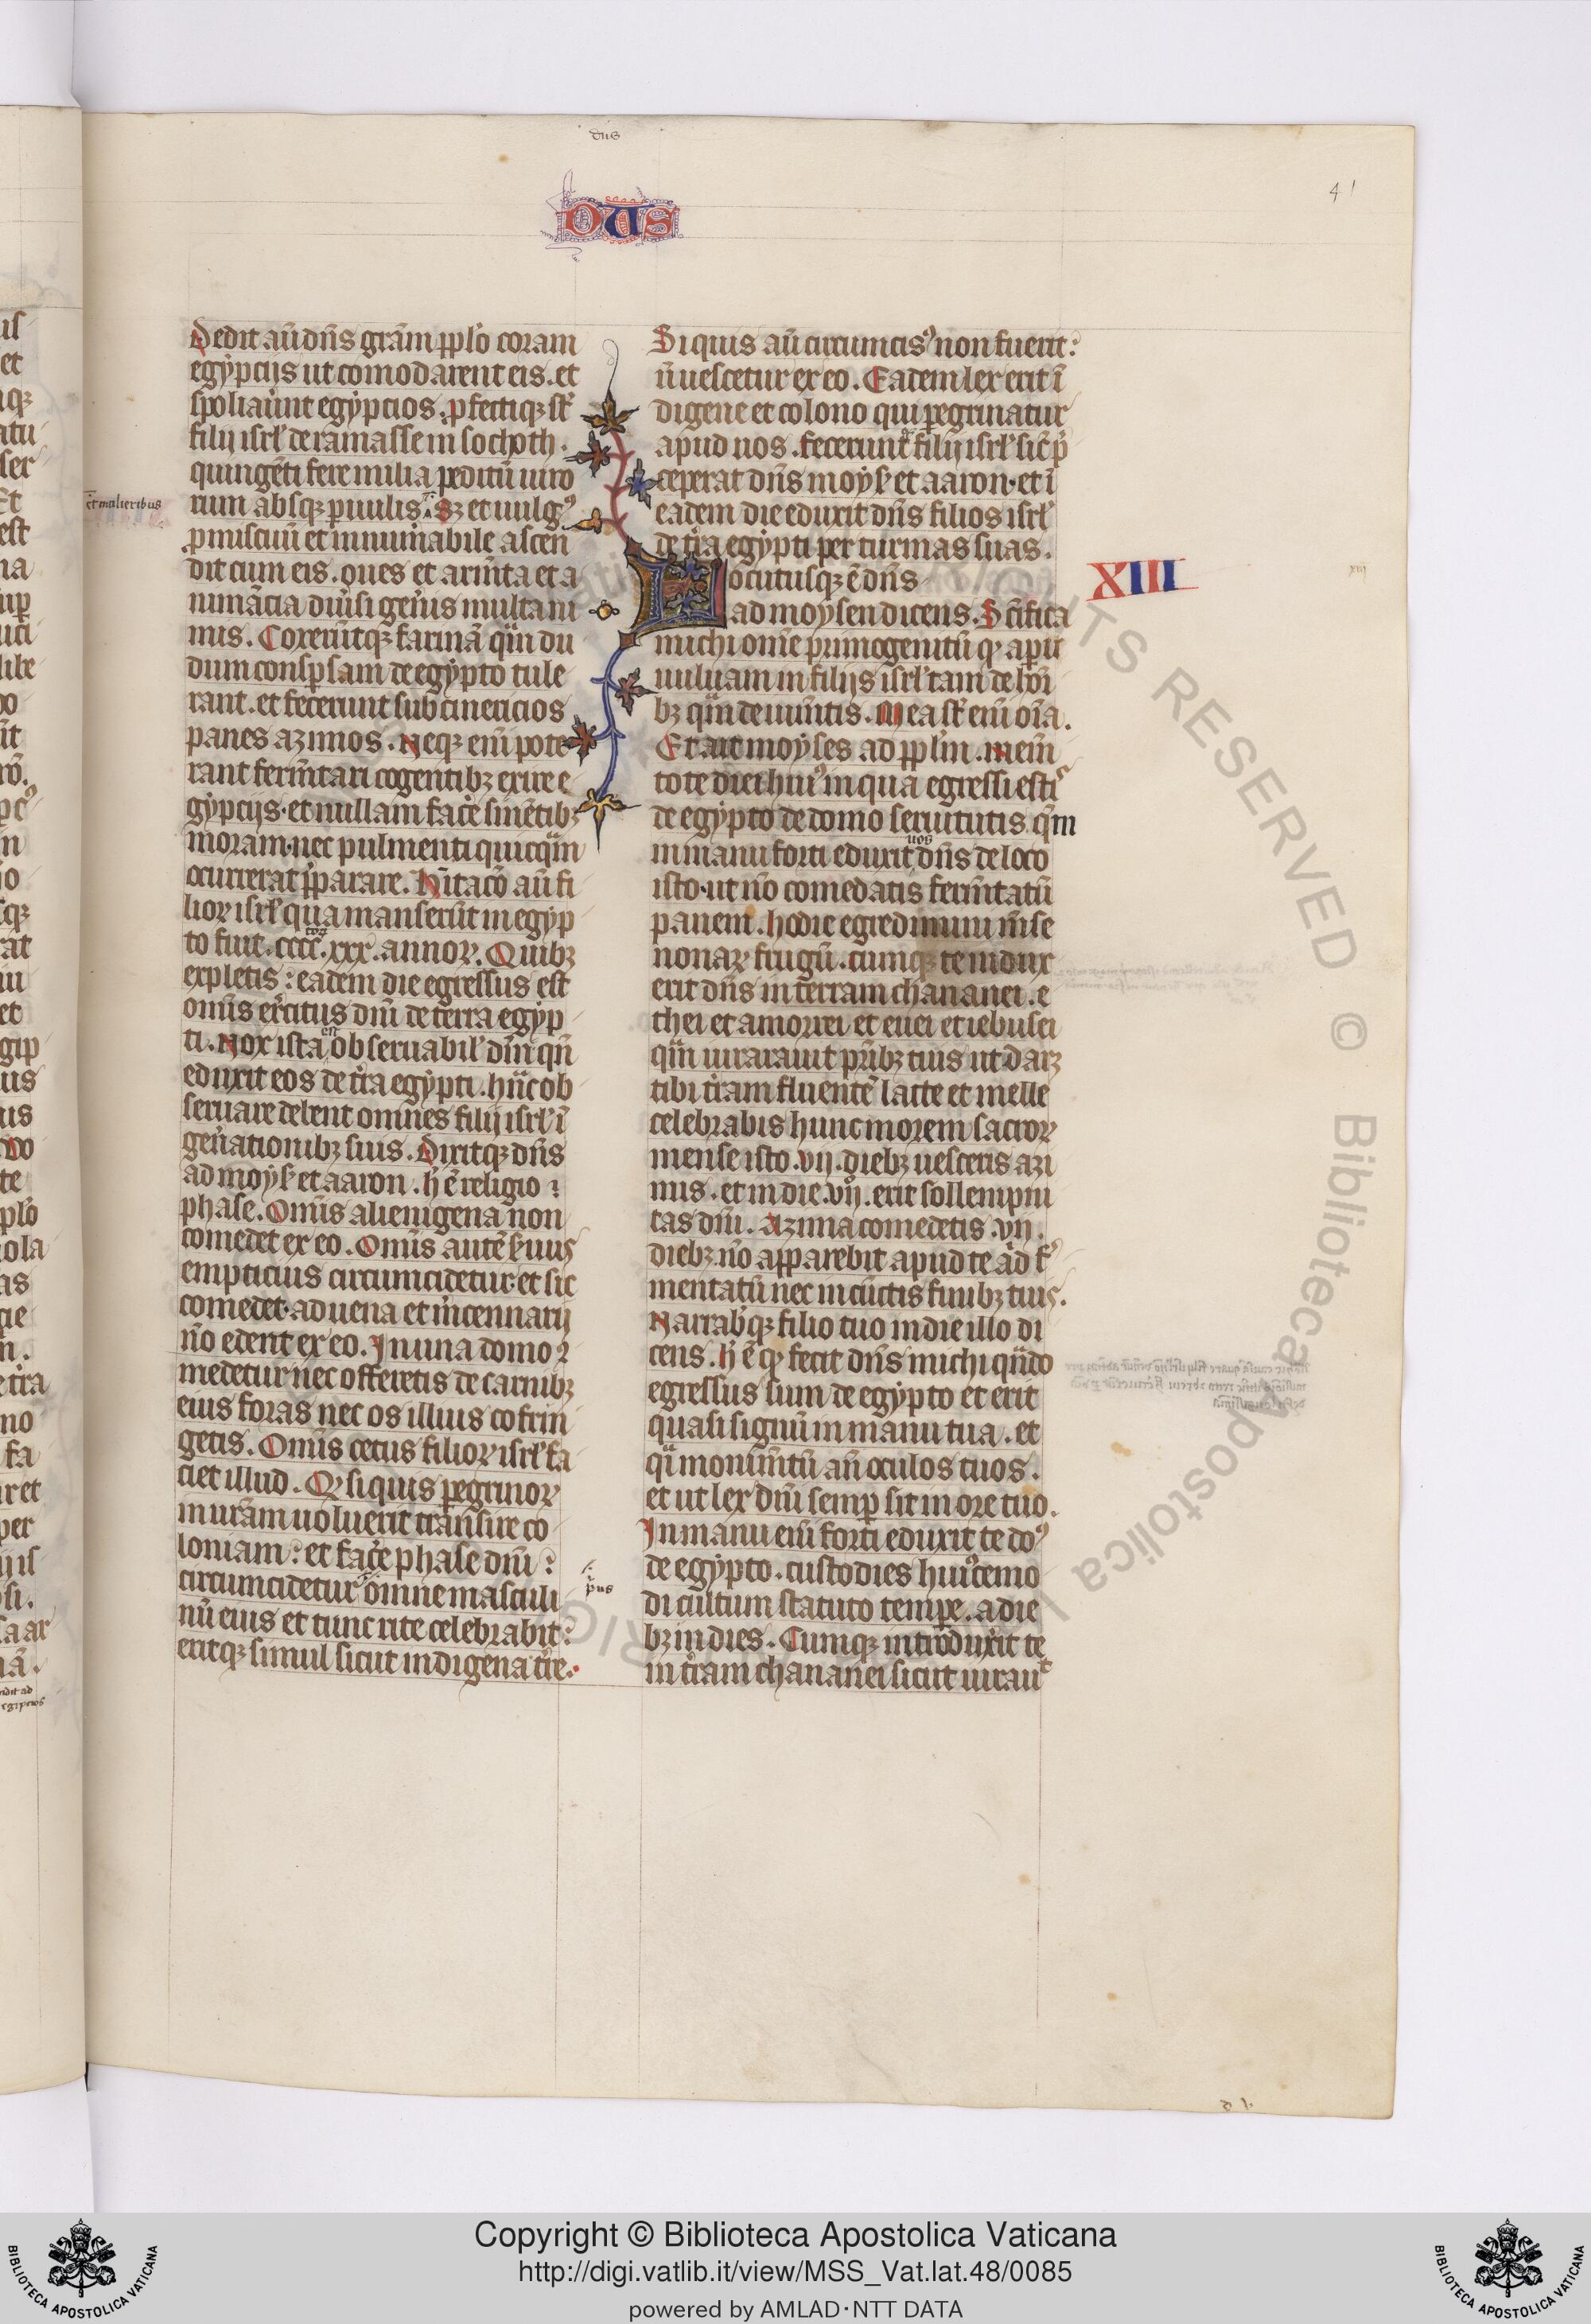 dns
DUS
41
Dedit aū dn̄s grām pplō coram
egypciis ut comodarent eis. et
spoliauūnt egypcios. pfectiq; st̄
filii isrl̄ de ramasse in sochoth.
quingēti fere milia peditū uiro
rum absq; paruulis. Sz et uulg⁹
et mulieribus
pmiscuū et innum̄abile ascen
dit cum eis. oues et arm̄ta et a
nimācia diu̇si gen̄is multa ni
mis. Coxerūtq; farinā q̄m du
dum conspsam de egypto tule
rant. et fecerunt subcinericios
panes azimos. Neq; eni pote
rant ferm̄tari cogentibz exire e
gypciis. et nullam fac̄e sinētibz
moram. nec pulmenti quicq̄m
ocurrerat p̄parare. Hītacō aū fi
lioꝝ isrl̄ qua manserūt in egyp
to fuit. cccc. xxx. annoꝝ. Quibz
expletis: eadem die egressus est
om̄is ex̄citus dn̄i de terra egyp
ti. Nox ista est obseruabil̄ dn̄i qn̄
eduxit eos de t̄ra egypti. hāc ob
seruare debent omnes filii isrl̄ ī
gen̄ationibz suis. Dixitq; dn̄s
ad moysē et aaron. h̄ ē religio
phase. Om̄is alienigena non
comedet ex eo. Om̄is autē s̄uus
empticius circumcidetur. et sic
comedet. aduena et m̄cennarii
nō edent ex eo. In una domo 9
medetur nec offeretis de carnibz
eius foras nec os illius cōfrin
getis. Om̄is cetus filioꝝ isrl̄ fa
ciet illud. Qd si quis pegrinoꝝ
in ur̄am uoluerit transire co
loniam: et fac̄e phase dn̄i:
circumcidetur omne masculi
nū eius et tunc rite celebrabit:
eritq; simul sicut indigena t̄re.
Si quis aū circumcis⁹ non fuerit:
n̄ uescetur ex eo. Eadem lex erit ī
digene et colono qui pegrinatur
apud uos. fecerunt filii isrl̄ sic̄ p̄
ceperat dn̄s moysi et aaron. et ī
eadem die eduxit dn̄s filios isrl̄
de t̄ra egypti per turmas suas.
XIII
xiij
Locutusq; ē dn̄s
ad moysen dicens. Sc̄ifica
michi om̄e primogenitū qd apit
uuluam in filiis isrl̄ tam de hōi
bz q̄m de ium̄tis. Mea st̄ eni oīa.
Et ait moyses ad pplm̄. mem̄
tote diei hui⁹ in qua egressi estis
de egypto de domo seruitutis. qm
in manu forti eduxit uos dn̄s de loco
isto. ut nō comedatis ferm̄tatū
panem. hodie egredimini m̄se
nonaꝝ frugū. cumq; te indux
erit dn̄s in terram chananei. e
thei et amorrei et euei et iebusei
q̄m iurauit pr̄ibz tuis ut daret
tibi t̄ram fluentē lacte et melle
celebrabis hunc morem sacroꝝ
mense isto. vii. diebz uesceris azi
mis. et in die. vii. erit sollempni
tas dn̄i. Azima comedetis. vii.
diebz nō apparebit apud te aliqd f⁹
mentatū nec in cūctis finibz tuis.
Narrab̄q; filio tuo in die illo di
cens. h̄ ē qd fecit dn̄s michi qn̄do
egressus sum de egypto et erit
quasi signū in manu tua. et
q̄i monum̄tū an̄ oculos tuos.
et ut lex dn̄i semp sit in ore tuo.
In manu eni forti eduxit te do⁹
de egypto. custodies hui⁹cemo
di cultum statuto tempe. a die
bz in dies. Cumq; introduxit te
in t̄ram chananei sicut iurauit
Copyright © Biblioteca Apostolica Vaticana
http://digi.vatlib.it/view/MSS_Vat.lat.48/0085
powered by AMLAD·NTT DATA
BIBLIOTECA APOSTOLICA VATICANA
BIBLIOTECA APOSTOLICA VATICANA